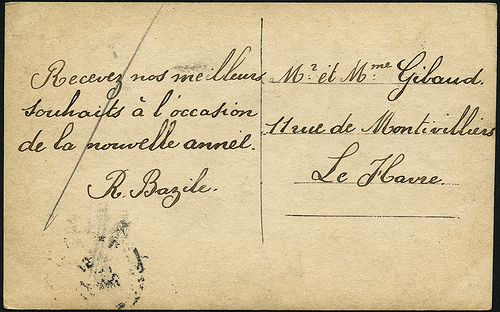 Recevez nos meilleurs
souhaits à l'occasion
de la nouvelle année.
R. Bazile.
Mr. et Mme Gibaud.
11 rue de Montivilliers
Le Havre.